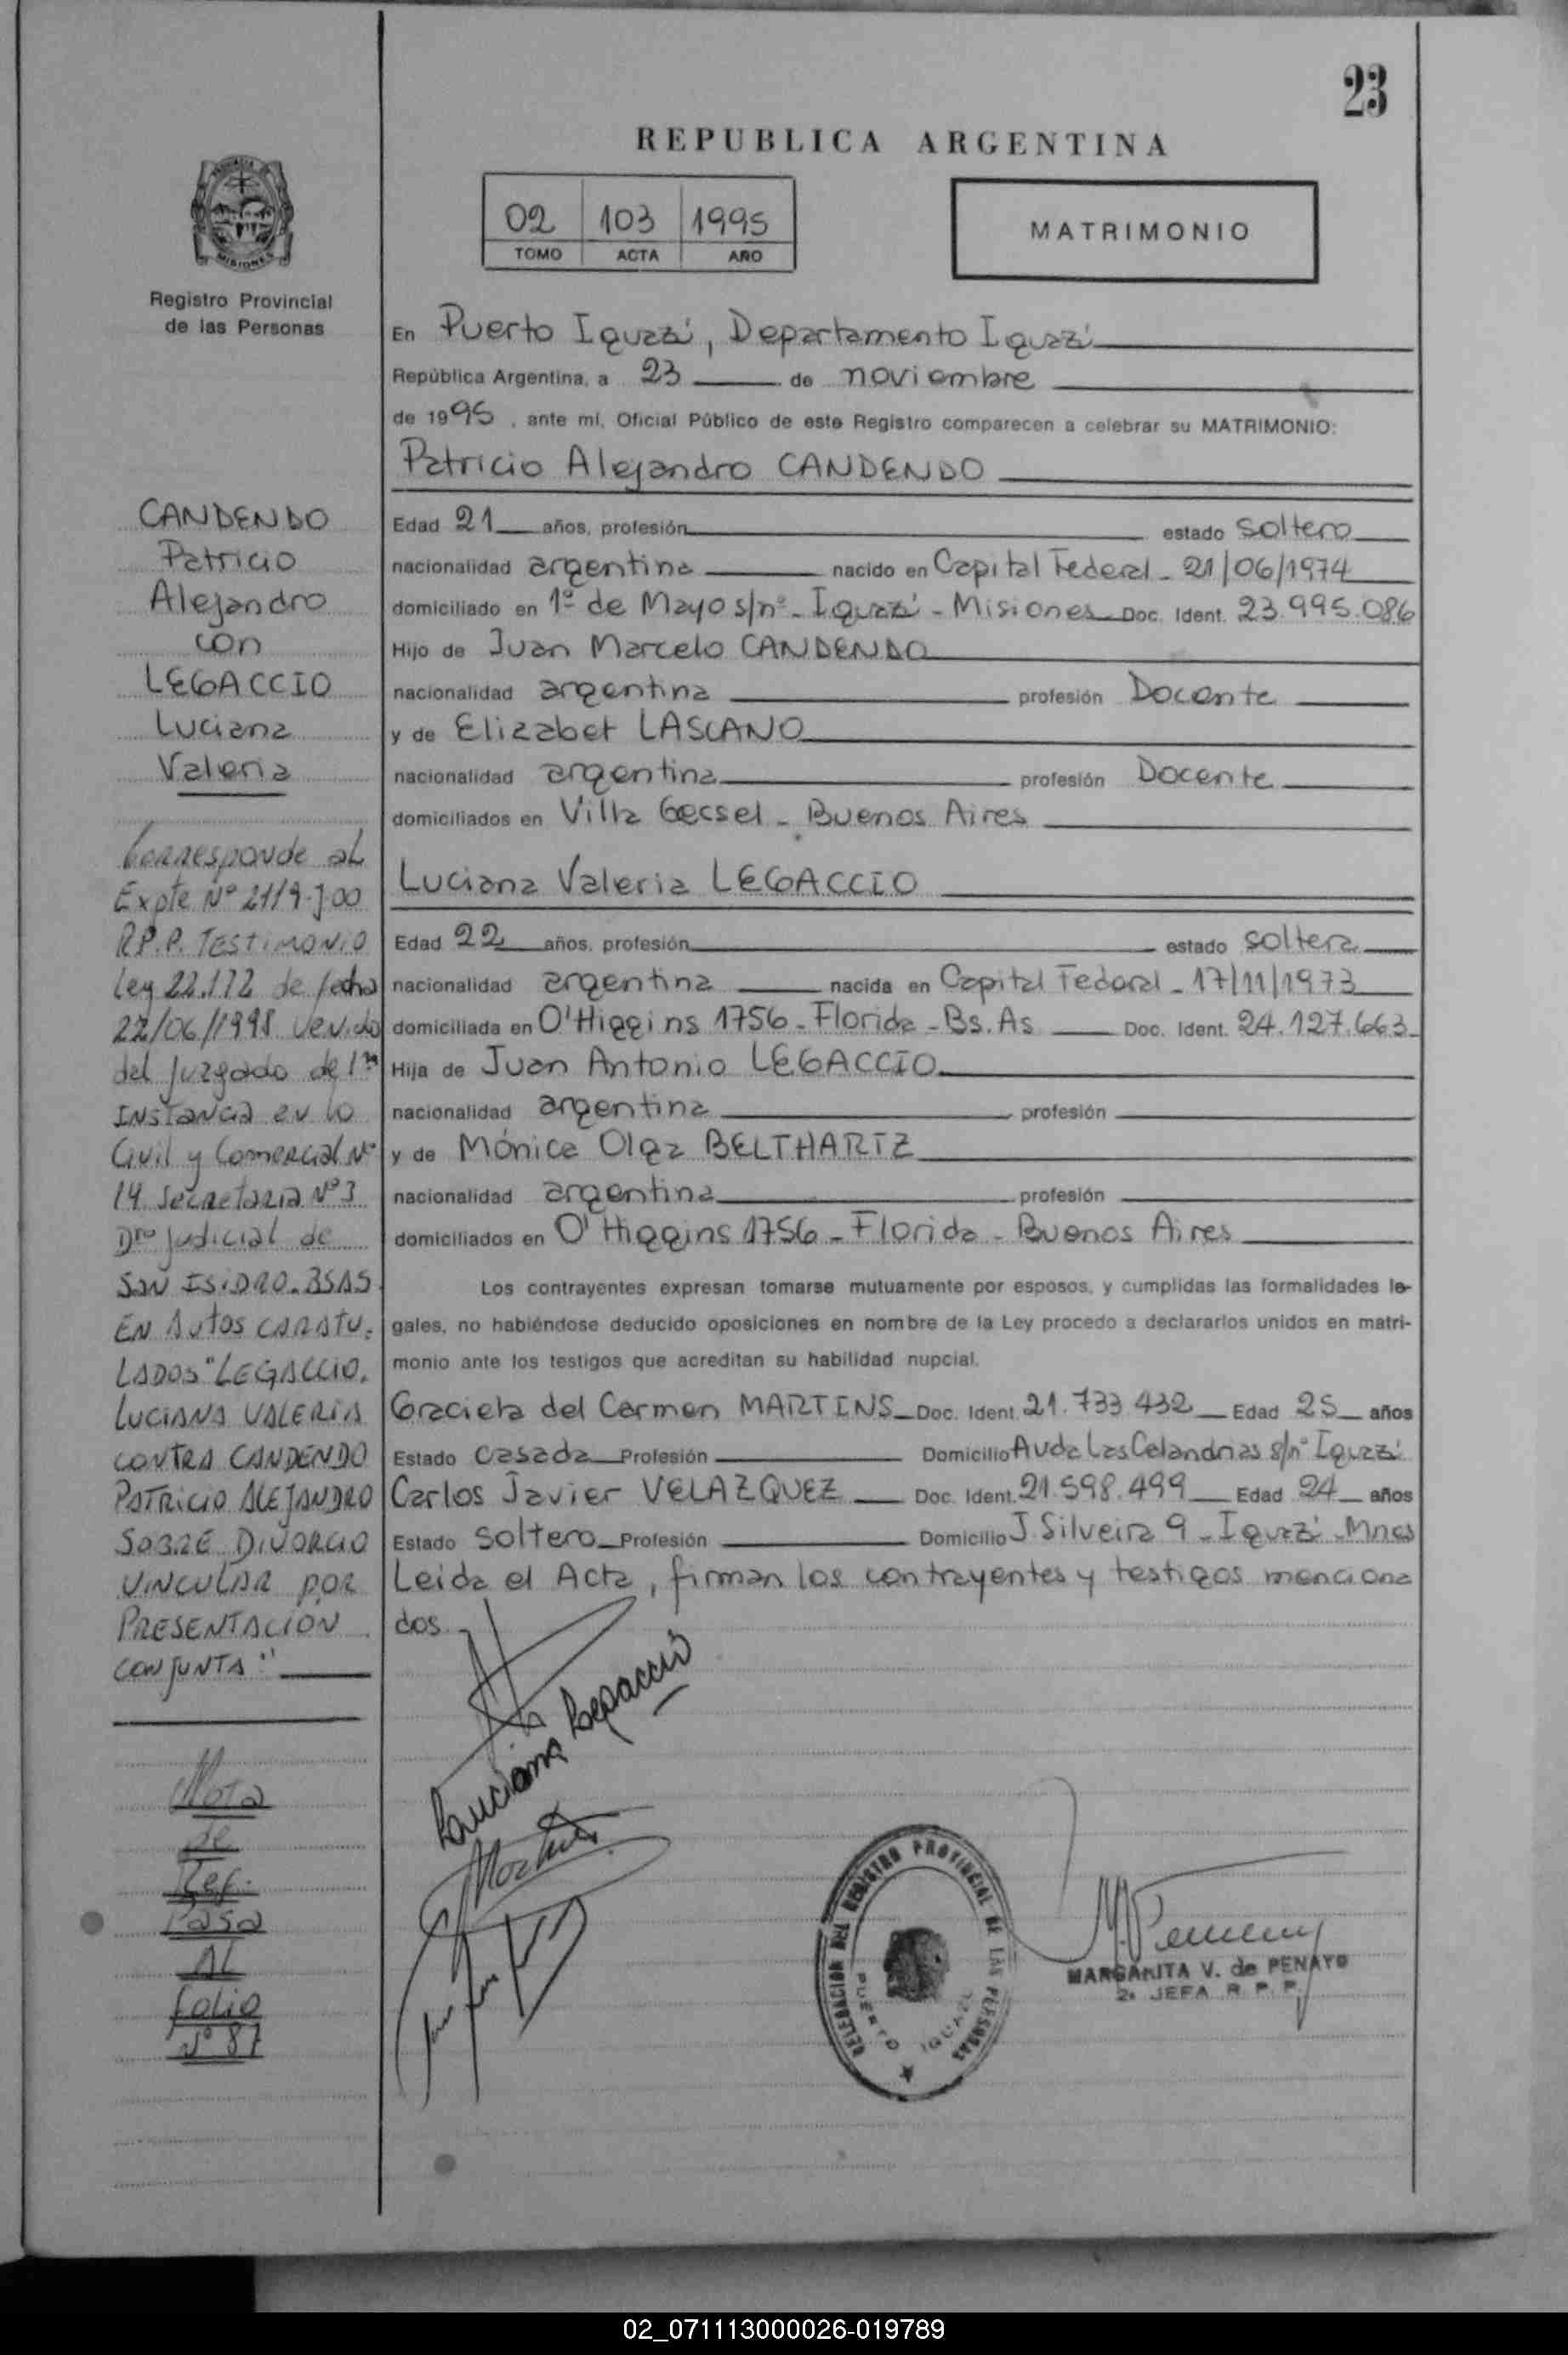 23
REPUBLICA ARGENTINA
02 103 1995
TOMO ACTA AÑO
MATRIMONIO
MISIONES
Registro Provincial
de las Personas
En Puerto Iguazú, Departamento Iguazú
República Argentina, a 23 de noviembre
de 1995, ante mí, Oficial Público de este Registro comparecen a celebrar su MATRIMONIO:
Patricio Alejandro CANDENDO
Edad 21 años, profesión estado soltero
nacionalidad argentina nacido en Capital Federal - 21/06/1974
domiciliado en 1º de Mayo s/nº - Iguazú - Misiones Doc. Ident. 23.995.086
Hijo de Juan Marcelo CANDENDO
nacionalidad argentina profesión Docente
y de Elizabet LASCANO
nacionalidad argentina profesión Docente
domiciliados en Villa Gecsel - Buenos Aires
Luciana Valeria LEGACCIO
Edad 22 años, profesión estado soltera
nacionalidad argentina nacida en Capital Federal - 17/11/1973
domiciliada en O'Higgins 1756 - Florida - Bs. As Doc. Ident. 24.127.663
Hija de Juan Antonio LEGACCIO
nacionalidad argentina profesión
y de Mónica Olga BELTHARTZ
nacionalidad argentina profesión
domiciliados en O'Higgins 1756 - Florida - Buenos Aires
Los contrayentes expresan tomarse mutuamente por esposos, y cumplidas las formalidades le-
gales, no habiéndose deducido oposiciones en nombre de la Ley procedo a declararlos unidos en matri-
monio ante los testigos que acreditan su habilidad nupcial.
Graciela del Carmen MARTINS Doc. Ident. 21.733.432 Edad 25 años
Estado casada Profesión Domicilio Avda Las Celandrias s/nº Iguazú
Carlos Javier VELAZQUEZ Doc. Ident. 21.598.499 Edad 24 años
Estado soltero Profesión Domicilio J. Silveira 9 - Iguazú - Mnes
Leida el Acta, firman los contrayentes y testigos menciona
dos.
Luciana Legaccio
DELEGACION DEL REGISTRO PROVINCIAL DE LAS PERSONAS
PUERTO IGUAZU
MARGARITA V. de PENAYO
2ª JEFA R. P. P.
CANDENDO
Patricio
Alejandro
con
LEGACCIO
Luciana
Valeria
Corresponde al
Expte Nº 2119-J-00
R.P.P. TESTIMONIO
Ley 22.172 de fecha
22/06/1998 venido
del Juzgado de 1ra
INSTANCIA EN LO
Civil y Comercial Nº
14 Secretaria Nº 3
Dto Judicial de
SAN ISIDRO. BSAS.
EN AUTOS CARATU-
LADOS "LEGACCIO,
LUCIANA VALERIA
CONTRA CANDENDO
PATRICIO ALEJANDRO
SOBRE DIVORCIO
VINCULAR POR
PRESENTACION
CONJUNTA"
Nota
de
Ref.
Pasa
AL
folio
Nº 87
02_071113000026-019789